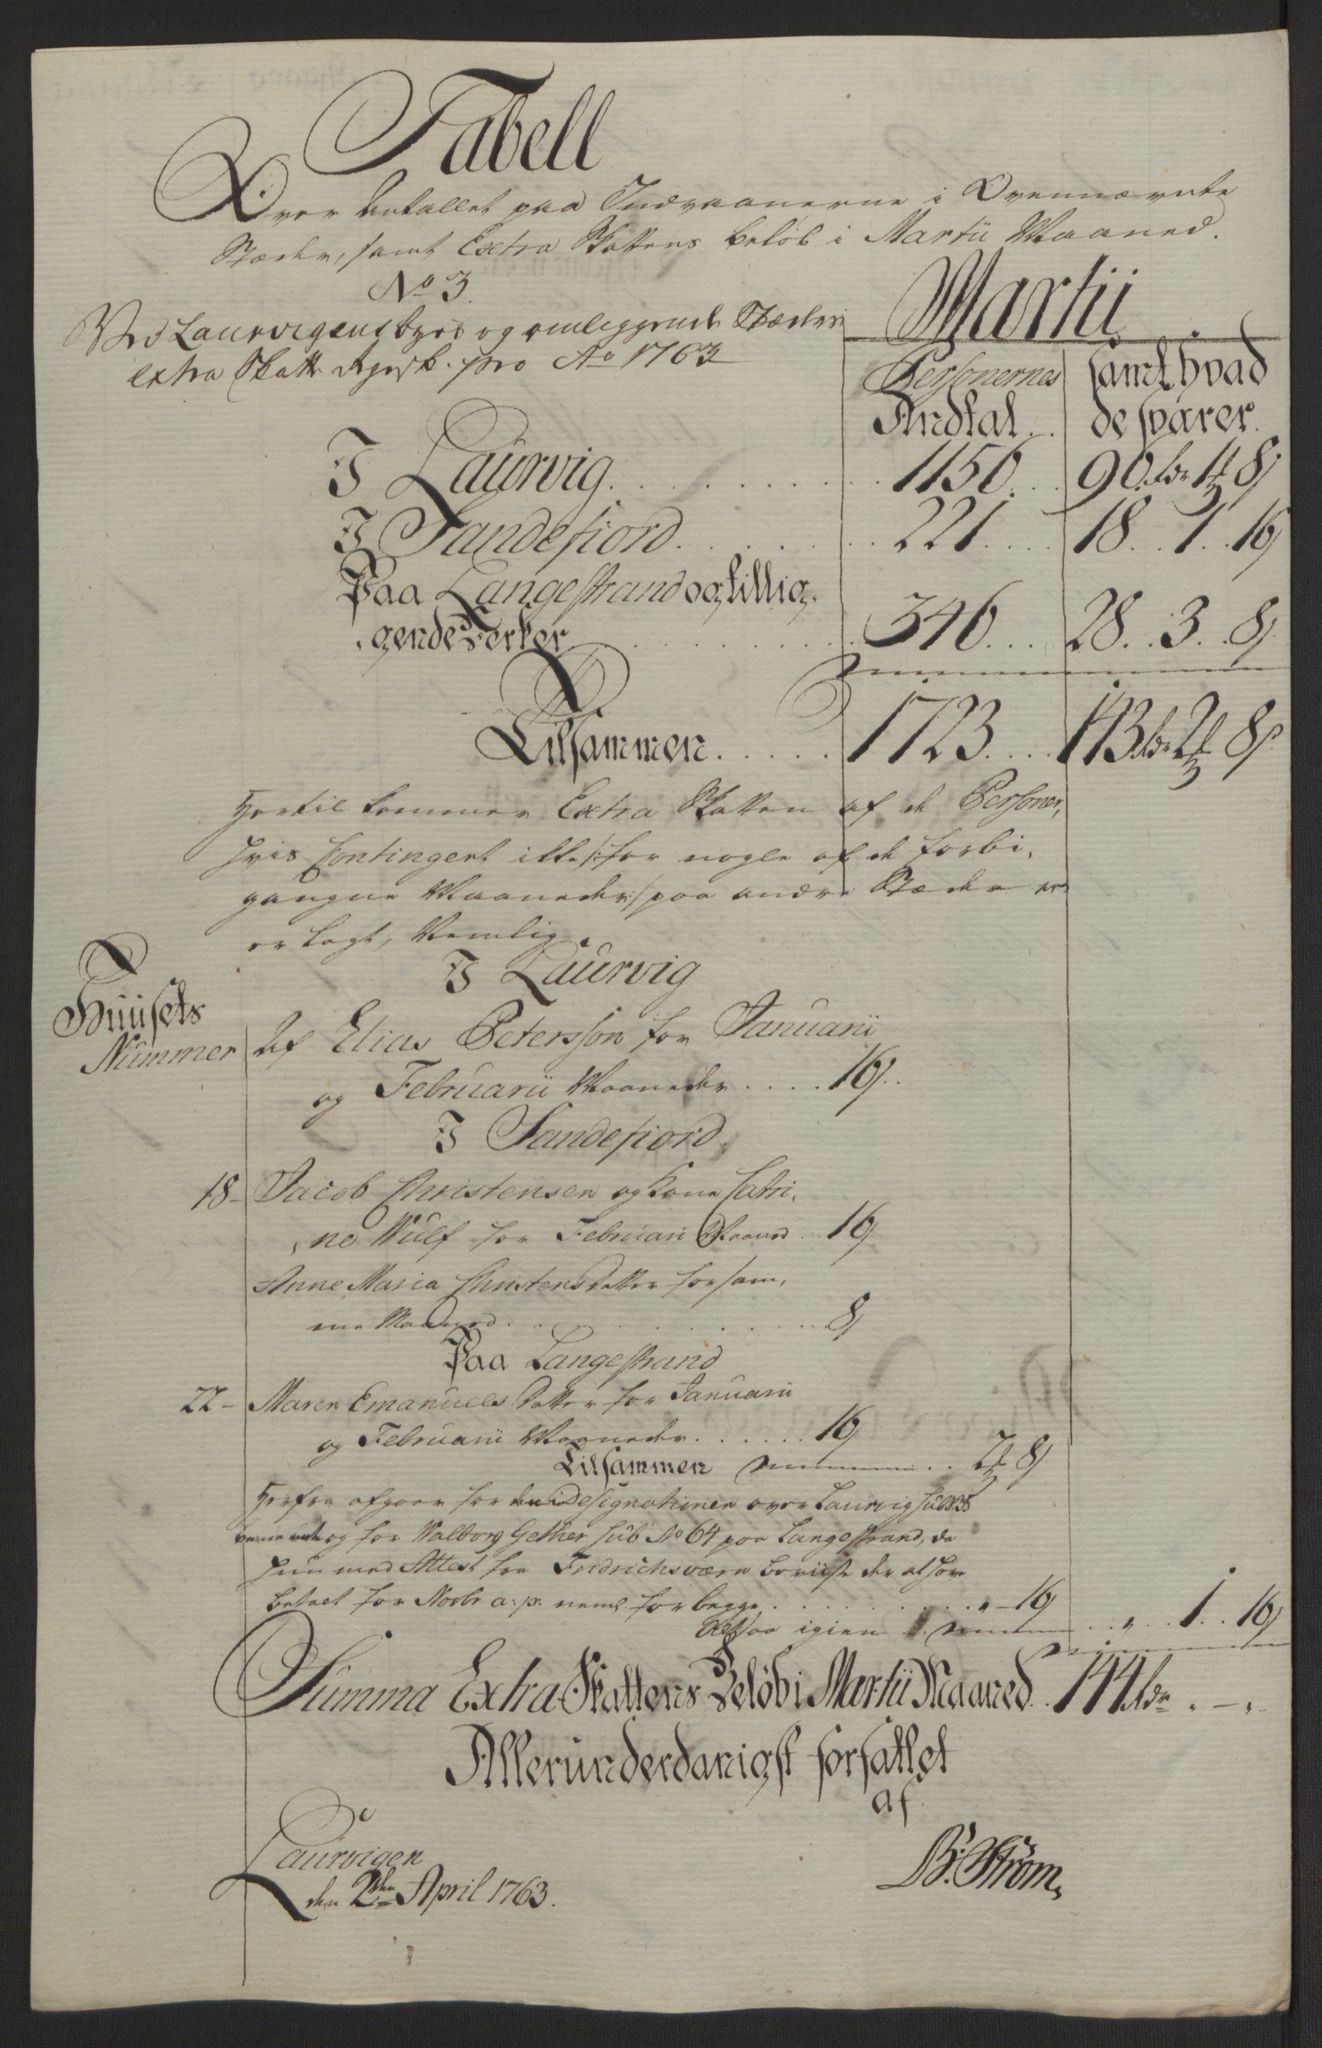 Tabell
Over Antallet paa Indvaanerne i Ovennævnte
Stæder, samt Extra Skattens beløb i Martii Maaned.
No 3.
Ved Laurvigens byes og omliggende Stæders
extra Skatt Regnsk. pro Ao 1763
Martii
Personernes samt hvad
Andtal de svarer
I Laurvig 1156 90 1 8
I Sandefiord 221 18 1 16
Paa Langestrand og tillig-
gende Verker 346 28 3 8
Tilsammen 1723 143 2 8
Hertil kommer Extra Skatten af de Personer,
hvis Contingent ikke /: for nogle af de forbi-
gangne Maaneder :/ paa andre Stæder er
erlagt, Nemlig
I Laurvig
Huusets
Nummer
Af Elias Petersson for Januarii
og Februarii Maaneder 16
I Sandefiord
18 - Jacob Christensen og Kone Catri-
ne Wulf for Februari Maaned 16
Anne Maria Christensdatter for sam-
me Maaned 8
Paa Langestrand
22 - Maren Emanuels datter for Januarii
og Februarii Maaneder 16
Tilsammen 2 8
Herfra afgaar for Designationen over Laurvig sub
og for Walborg Gether sub No 64 paa Langestrand, da
hun med Attest fra Fridrichsværn beviiste der at have
betalt for Novbr a: p: neml for begge " - 16
Altsaa igien " 1 16
Summa Extra Skattens Beløb i Martii Maaned 144 - "
Allerunderdanigst forfattet
af
Laurvigen
den 2den April 1763.
B: Strøm